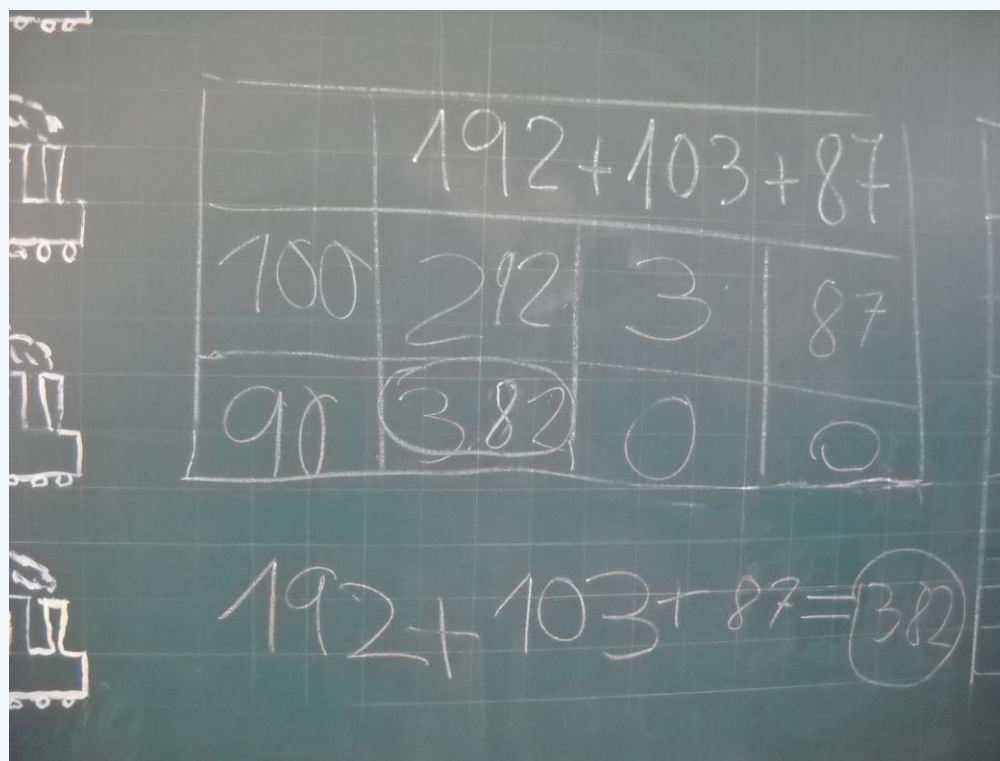 192+103+87
100 292 3 87
90 382 0 0
192+103+87=382